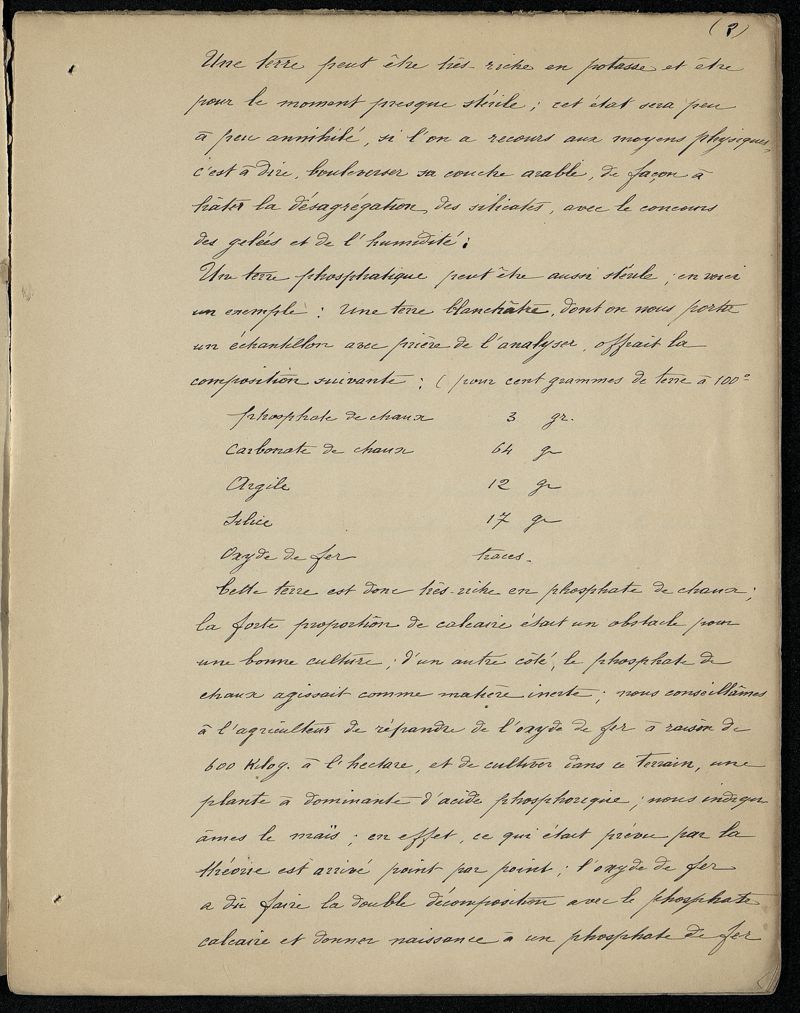 Une terre peut être très-riche en potasse et être
pour le moment presque stérile ; cet état sera peu
à peu annihilé, si l'on a recours aux moyens physiques,
c'est à dire, bouleverser sa couche arable, de façon à
hâter la désagrégation des silicates, avec le concours
des gelées et de l'humidité :
Une terre phosphatique peut être aussi stérile ; en voici
un exemple : Une terre blanchâtre, dont on nous porta
un échantillon avec prière de l'analyser, offrait la
composition suivante : ( pour cent grammes de terre à 100°
phosphate de chaux 3 gr.
Carbonate de chaux 64 gr
Argile 12 gr
Silice 17 gr
Oxyde de fer traces.
Cette terre est donc très-riche en phosphate de chaux ;
la forte proportion de calcaire était un obstacle pour
une bonne culture ; d'un autre côté, le phosphate de
chaux agissait comme matière inerte ; nous conseillâmes
à l'agriculteur de répandre de l'oxyde de fer à raison de
600 Klog. à l'hectare, et de cultiver dans ce terrain, une
plante à dominante d'acide phosphorique ; nous indiqu
âmes le maïs ; en effet, ce qui était prévu par la
théorie est arrivé point par point ; l'oxyde de fer
a dû faire la double décomposition avec le phosphate
calcaire et donner naissance à un phosphate de fer